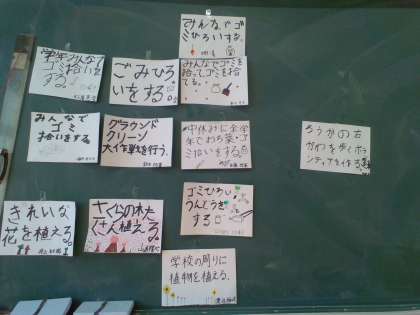 みんなでゴ
ミひろいする。
学年みんなで
ゴミ拾いを
する。
ごみひろ
いをする。
みんなでゴミを
拾ってゴミを捨
てる。
みんなで
ゴミ
拾いをする。
グラウンド
クリーン
大作戦を行う。
中休みに全学
年で
ゴミ拾いをする。
ろうかの右
がわを歩くボラ
ンティアを作る。
ゴミひろい
うんどうを
する
きれいな
花を植える。
さくらのわた
くさん植える。
学校の周りに
植物を植える。